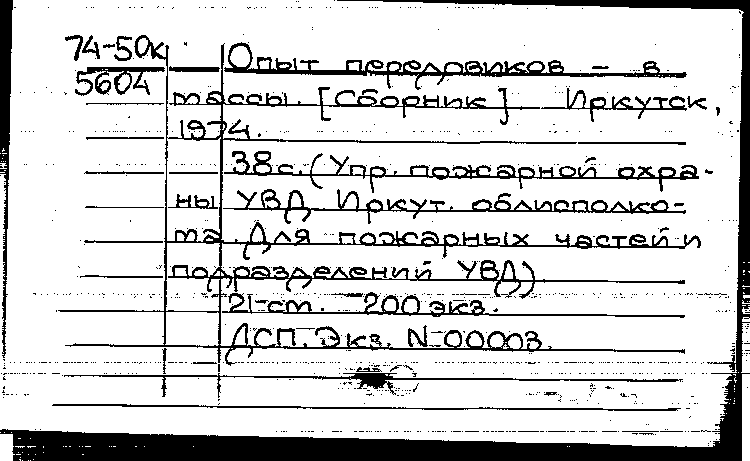 74-50к Опыт передовиков – в
5604 массы. [Сборник]. Иркутск,
1974.
38с. (Упр. пожарной охра-
ны УВД Иркут. облисполко-
ма. Для пожарных частей и
подразделений УВД)
21 см. 200 экз.
ДСП. Экз. N-00003.